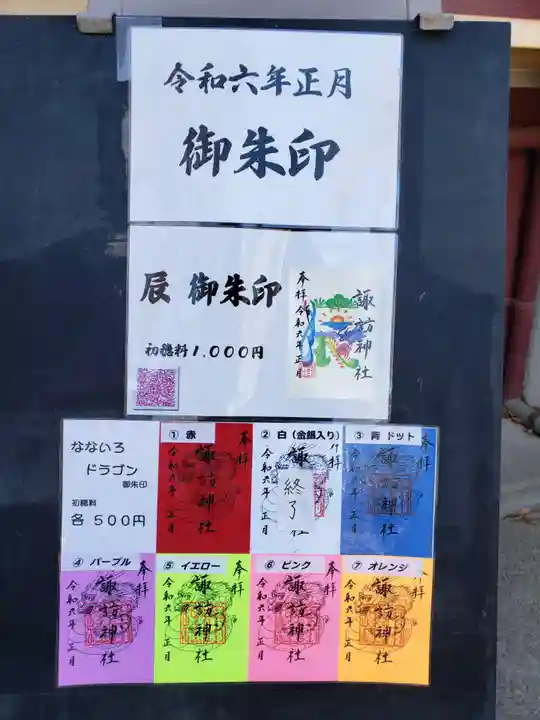 令和六年正月
御朱印
辰 御朱印
初穂料1,000円
奉拝
諏訪神社
令和六年正月
なないろ
ドラゴン
御朱印
初穂料
各 500円
① 赤
奉拝
諏訪神社
令和六年 正月
② 白(金銀入り)
奉拝
諏訪神社
終了
令和六年 正月
③ 青 ドット
奉拝
諏訪神社
令和六年 正月
④ パープル
奉拝
諏訪神社
令和六年 正月
⑤ イエロー
奉拝
諏訪神社
令和六年 正月
⑥ ピンク
奉拝
諏訪神社
令和六年 正月
⑦ オレンジ
奉拝
諏訪神社
令和六年 正月